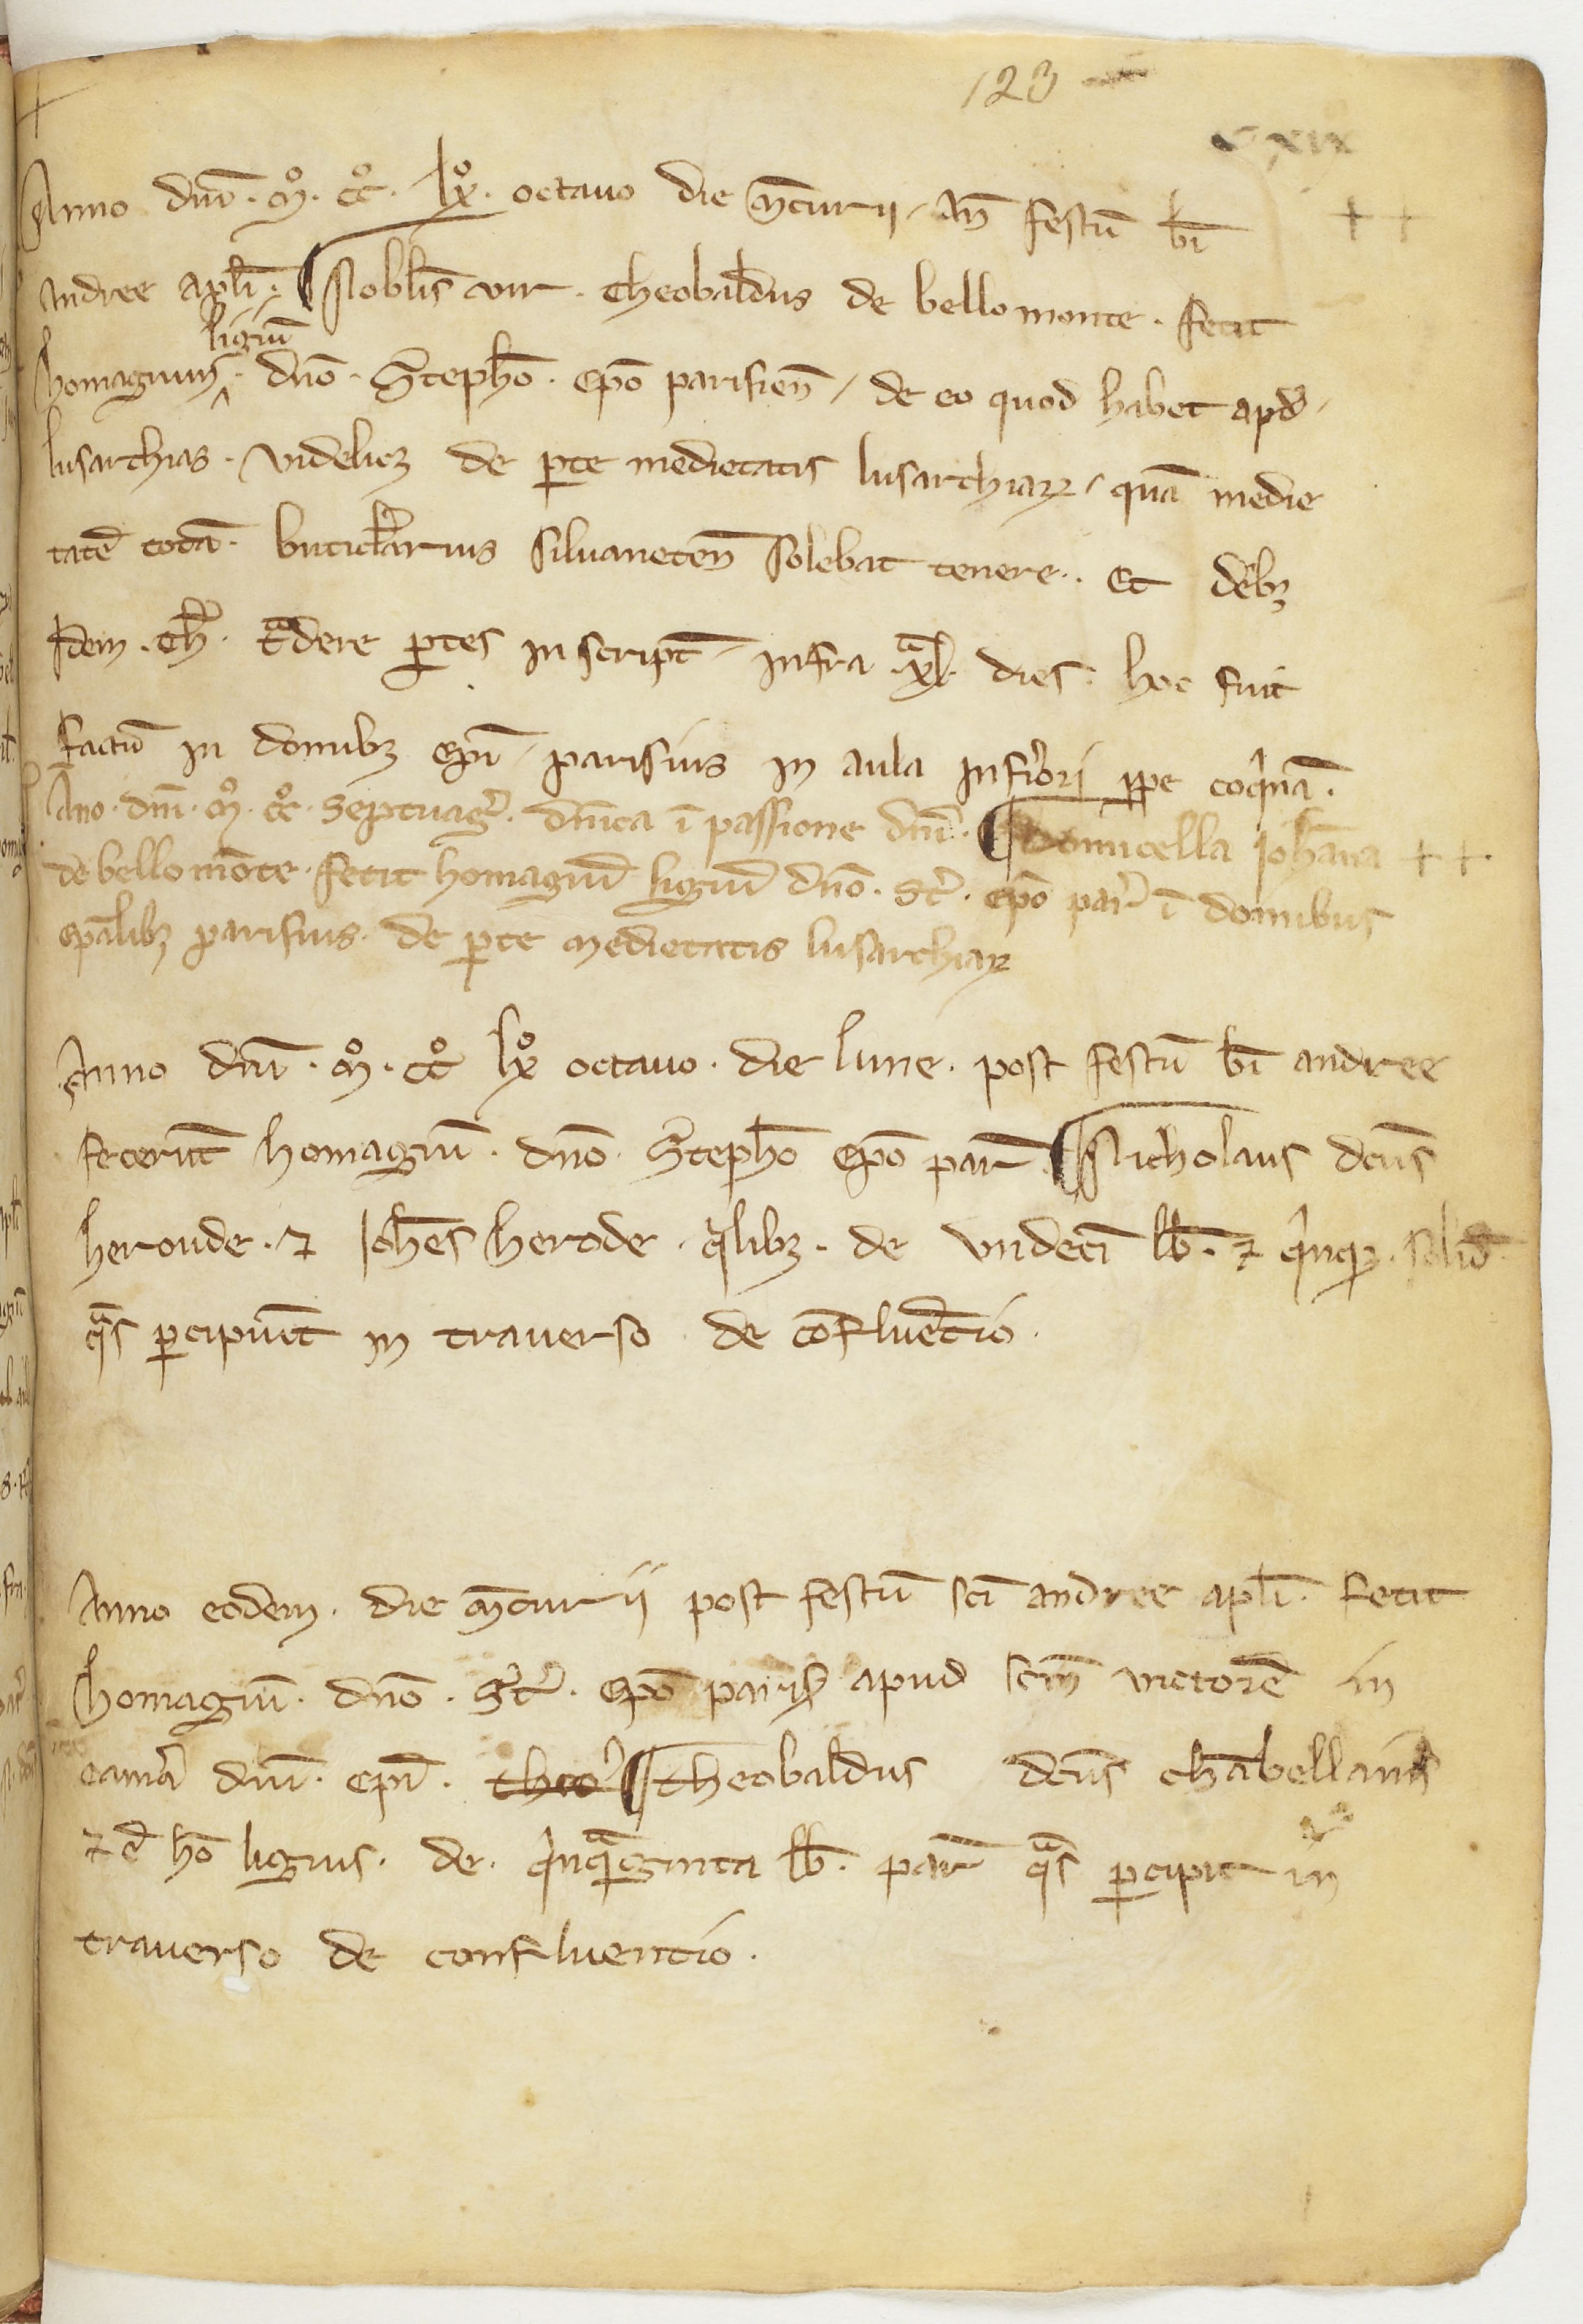 123
cxix
Anno dnī · mͦ · ccͦ · lxͦ · octauo die m̄curii / an̄ festū bī
Andree apl̄i · Nobl̄is vir · Theobaldus de bello monte · fecit
homagium ligiū · dnō · Steph̄o · ep̄o parisien̄ / de eo quod habet apd̄ /
lusarchias · videlicꝫ de ꝑte medietatis lusarchiaꝝ / quā medie
tatē totā · buticl̄arius siluaneten̄ solebat tenere · Et debꝫ
idem · Th̄ · tᵃdere ꝑtes in script̄ / infra · xlᵃ · dies · hoc fuit
factū in domibꝫ ep̄i / parisius in aula inf̓iori ꝓpe coq̓nā ·
Ano · dnī · mͦ · ccͦ · septuag̓ · dn̄ica ī passione dnī · Domicella Joh̄ana ++
de bello mōte · fecit homagiū ligiū dnō · St̓ · ep̄o par̓ ī domibus
ep̄alibꝫ parisius · de ꝑte medietatis lusarchiaꝝ
Anno dnī · mͦ · ccͦ lxͦ octauo · die lune · post festū bī andree
fecerūt homagiū · dnō · Steph̄o ep̄o par̄ · Nicholaus dc̄us
heronde · ⁊ Joh̄es herode · qͥlibꝫ · de vndecī lb̄ · ⁊ qͥnqꝫ · solid̄
qᵃs ꝑcipiūt in trauerso de cōfluētio ·
Anno eodem · die m̄curii post festū scī andree apl̄i · fecit
homagiū · dnō · St̓ · ep̄o paris̄ apud scm̄ victorē in
cam̓a dnī · ep̄i · theo̓ Theobaldus dc̄us chābellanus
⁊ ē hō ligius · de · qͥnqᵃginta lb̄ · par̄ qᵃs ꝑcipit in
trauerso de confluentio ·